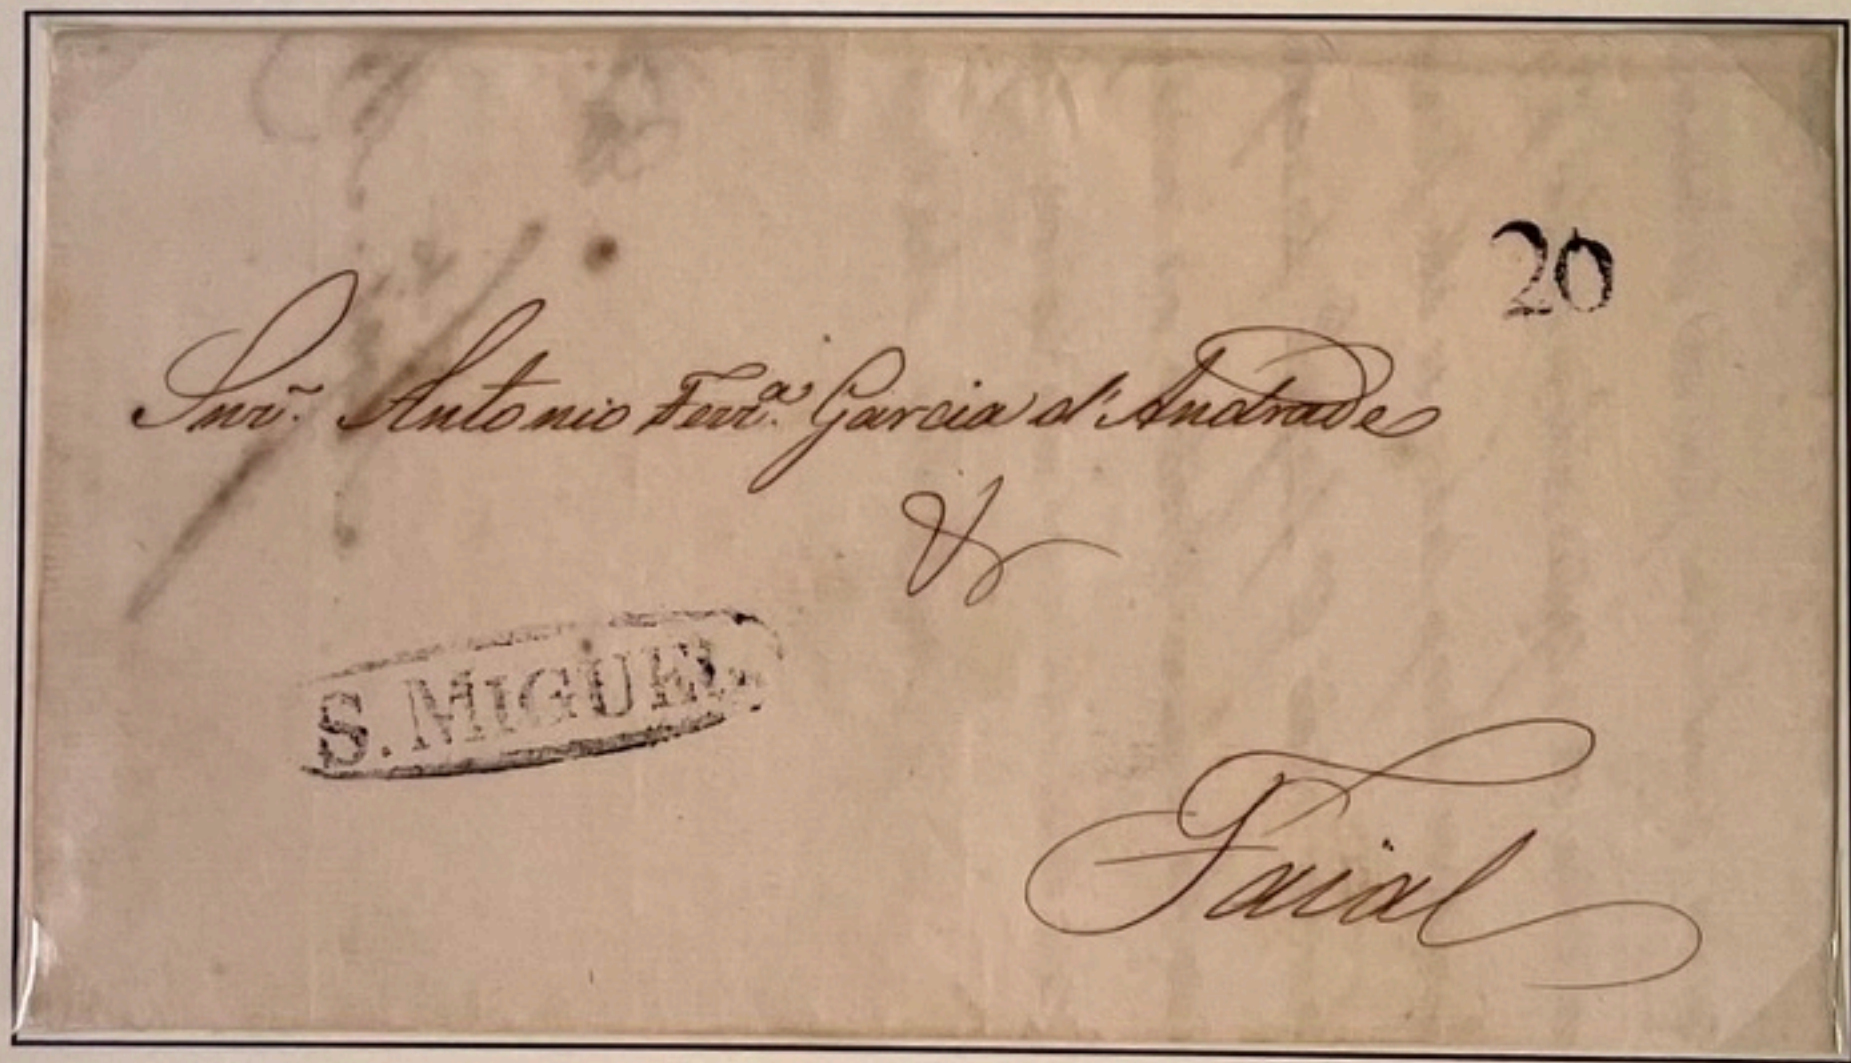 20
Snr̃. Antonio Ferr.ª Garcia d'Andrade
&
S. MIGUEL
Faial